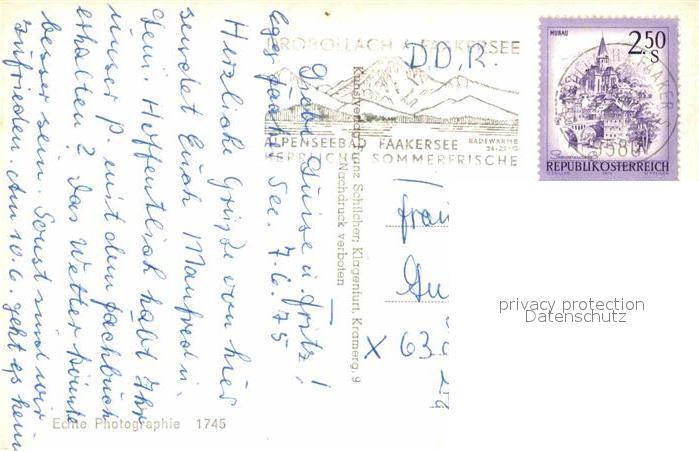 Egger Faaker See. 7.6.75
Liebe Luise u. Fritz!
Herzliche Grüße von hier
sendet Euch Manfred u.
Hoffentlich habt Ihr
unser P. mit dem Fachbuch
erhalten? Das Wetter könnte
besser sein. Sonst sind wir
zufrieden. Am 10.6. geht es heim
Echte Photographie 1745
Kunstverlag Franz Schilcher, Klagenfurt, Kramerg. 9
Nachdruck verboten
DROBOLLACH A. FAAKERSEE
ALPENSEEBAD FAAKERSEE
BADEWÄRME
24-27°C
HERRLICHE SOMMERFRISCHE
D.D.R.
MURAU
2.50
S
REPUBLIK ÖSTERREICH
9580
Frau
X 63
privacy protection
Datenschutz